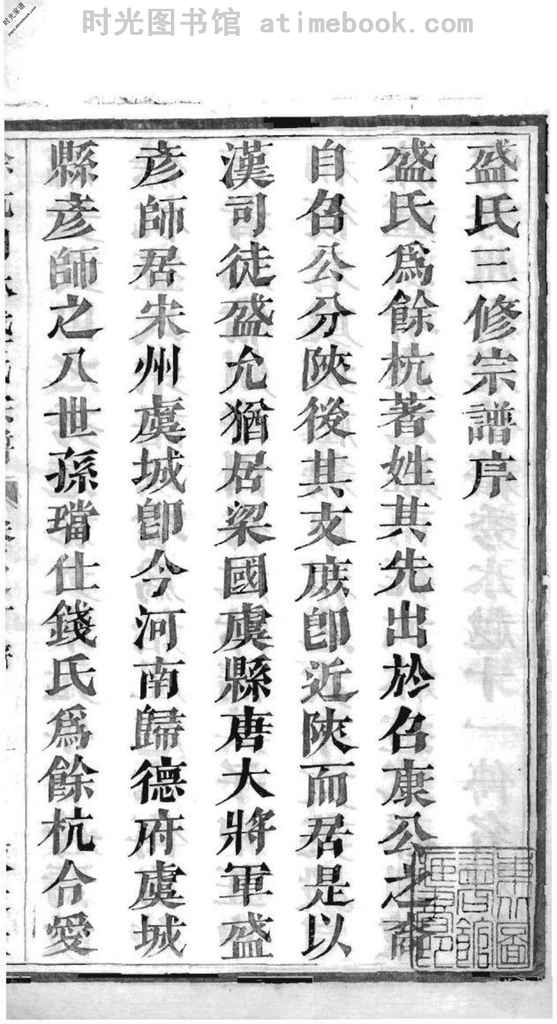 时光图书馆 atimebook.com
盛氏三修宗譜序
盛氏爲餘杭著姓其先出於召康公之裔
自召公分陝後其支庻卽近陝而居是以
漢司徒盛允猶居梁國虞縣唐大將軍盛
彥師居宋州虞城卽今河南歸德府虞城
縣彥師之八世孫璫仕錢氏爲餘杭令愛